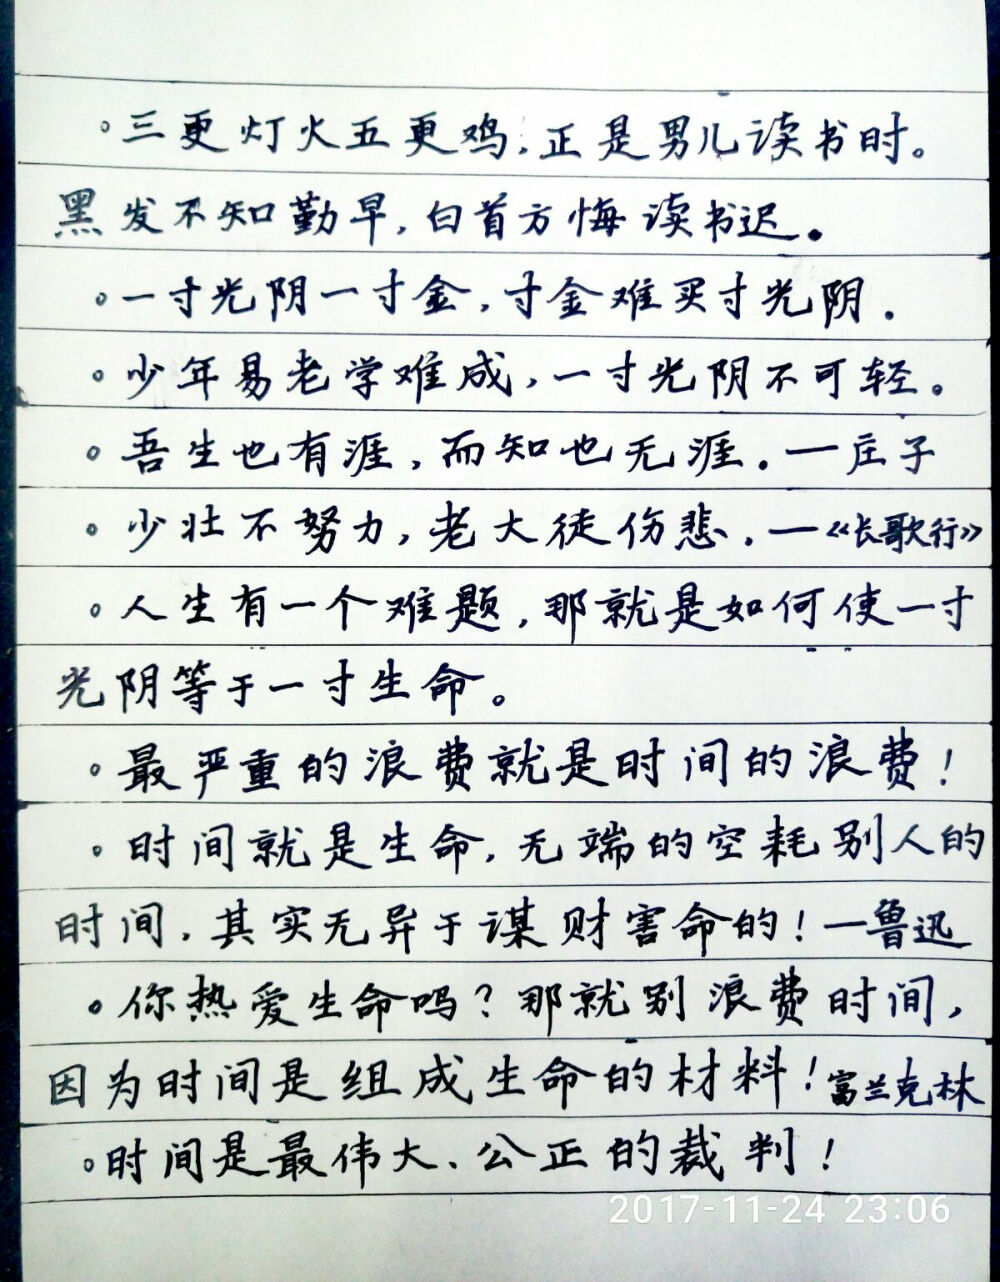 。三更灯火五更鸡,正是男儿读书时。
黑发不知勤早,白首方悔读书迟。
。一寸光阴一寸金,寸金难买寸光阴.
。少年易老学难成,一寸光阴不可轻。
。吾生也有涯,而知也无涯.—庄子
。少壮不努力,老大徒伤悲.—《长歌行》
。人生有一个难题,那就是如何使一寸
光阴等于一寸生命。
。最严重的浪费就是时间的浪费!
。时间就是生命,无端的空耗别人的
时间,其实无异于谋财害命的!—鲁迅
。你热爱生命吗?那就别浪费时间,
因为时间是组成生命的材料!富兰克林
。时间是最伟大、公正的裁判!
2017-11-24 23:06